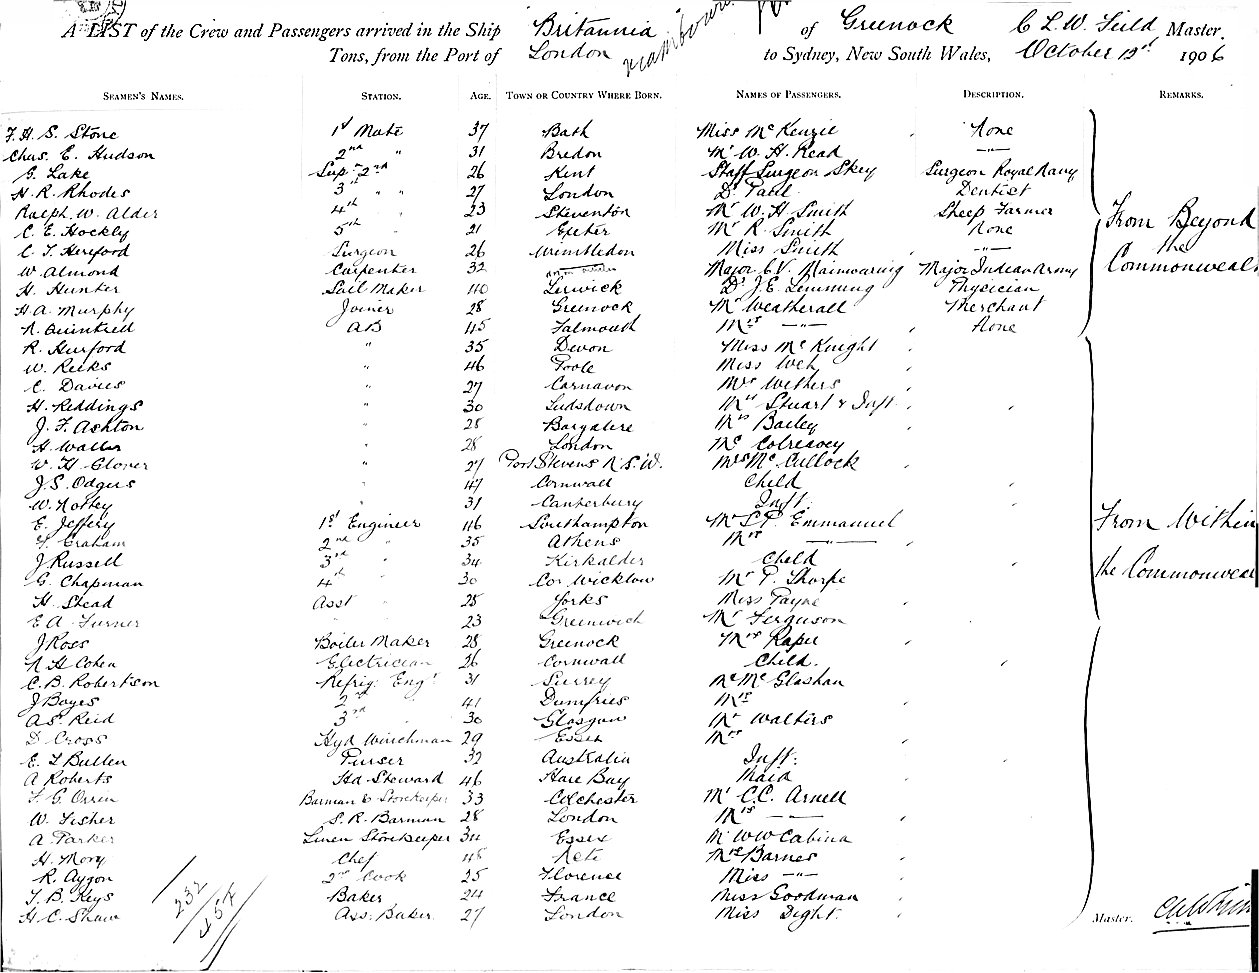 A LIST of the Crew and Passengers arrived in the Ship Britannia of Greenock C L.W. Field Master.
Tons, from the Port of London to Sydney, New South Wales, October 12th 1906
SEAMEN'S NAMES. STATION. AGE. TOWN OR COUNTRY WHERE BORN. NAMES OF PASSENGERS. DESCRIPTION. REMARKS.
F. H. S. Stone 1st Mate 37 Bath Miss McKenzie None
Chas. E. Hudson 2nd " 31 Bredon Mr W. H. Read —"—
G. Lake Sup. 2nd 26 Kent Staff Surgeon Skey Surgeon Royal Navy
H. R. Rhodes 3rd " " 27 London Dr Dentist
Ralph. W. Alder 4th " 23 Steventon Mr W. H Smith Sheep Farmer
C. E. Hockly 5th " 21 Exeter Mr R. Smith None
C. T. Hereford Surgeon 26 Wimbledon Miss Smith —"—
From Beyond the Commonweal
W. Almond Carpenter 32 Major C.V. Mainwaring Major Indian Army
H. Hunter Sail Maker 40 Lerwick Dr J. E. Lemming Physician
H. A. Murphy Joiner 28 Greenock Mr Weatherall Merchant
N. Quintrell AB 45 Falmouth Mrs —"— None
R. Hurford " 35 Devon Miss McKnight
W. Reeks " 46 Poole Miss
C. Davies " 27 Carnavon Mrs Withers
H. Reddings " 30 Ludsdown Mrs Stuart & Inft
J. F. Ashton " 28 Mrs Bailey
H. Waller " 28 London Mr Colreavey
W. H. Glover " 27 Port Stevens N.S.W. Mrs McCullock
J. S. Odgers " 47 Cornwall Child
W. Notley " 31 Canterbury Inft.
E. Jeffery 1st Engineer 46 Southampton Mr Emmanuel From Within
Graham 2nd " 35 Athens Mrs —"—
J Russell 3rd " 34 Kirkalder Child the Commonweal
G. Chapman 4th " 30 Co. Wicklow Mr T. Sharpe
H. Stead Asst " 28 Yorks Miss Payne
E A. Turner " 23 Greenwich Mr Ferguson
J Ross Boiler Maker 28 Greenock Mrs Raper
N H Cohen Electrician 26 Cornwall Child.
C. B. Robertson Refrig. Engr 31 Surrey Mr McGlashan
J Boyes 2nd " 41 Dumfries Mrs
A S. Reid 3rd " 30 Glasgow Mr Walters
D. Cross Hyd Winchman 29 Essex Mrs
E. T Bullen Purser 32 Australia Inft.
A Roberts Hd Steward 46 Hare Bay Maid
F. G. Orrin Barman & Storekeeper 33 Colchester Mr C. C. Arnell
W. Fisher S. R. Barman 28 London Mrs —"—
A. Parker Linen Storekeeper 34 Essex Mr W W Cabina
H. Mory Chef 48 Mrs Barnes
R. Aygon 2nd Cook 25 Florence Miss —"—
T. B. Keys Baker 24 France Miss Goodman
H. C. Shaw Ass. Baker 27 London Miss Dight.
232
Master.